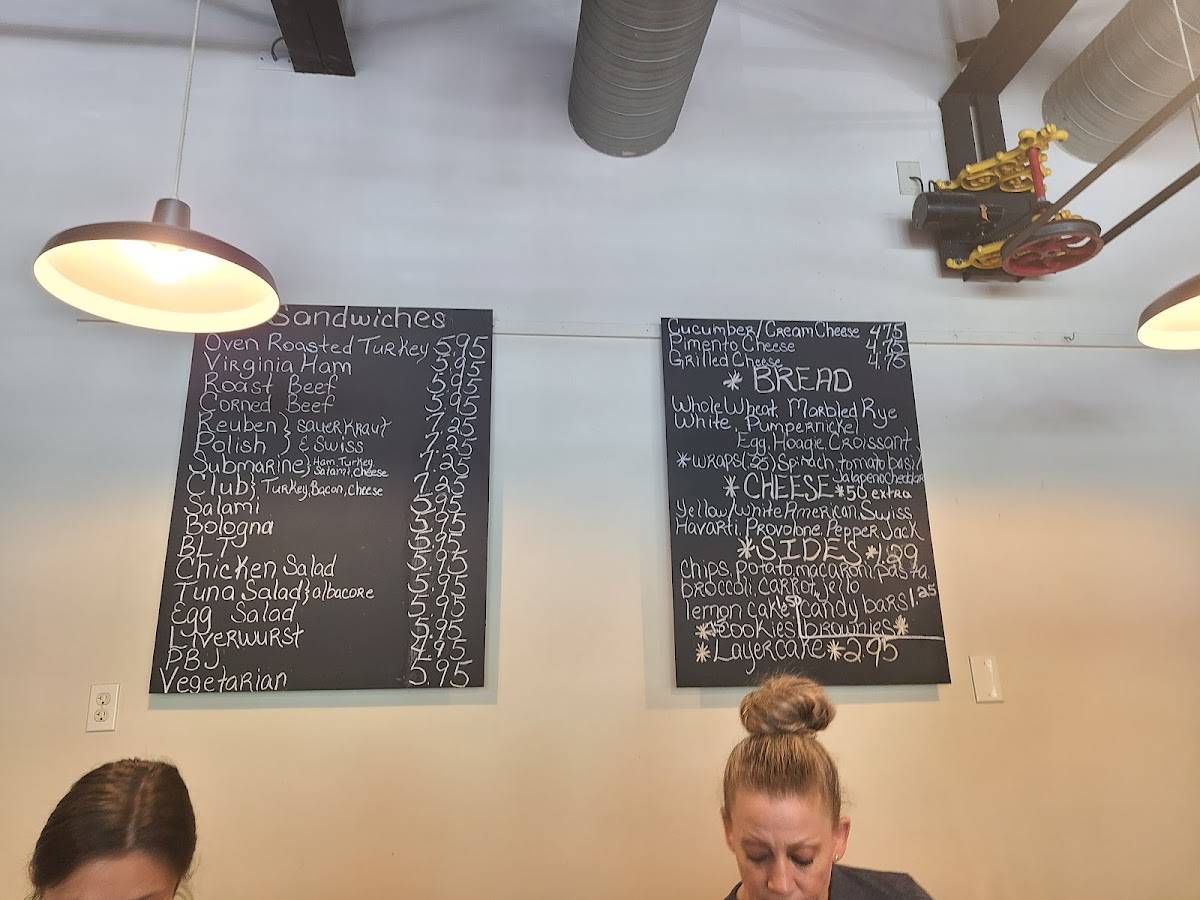 Sandwiches
Oven Roasted Turkey 5.95
Virginia Ham 5.95
Roast Beef 5.95
Corned Beef 5.95
Reuben } sauerkraut 7.25
Polish } & Swiss 7.25
Submarine } Ham, Turkey, Salami, Cheese 7.25
Club } Turkey, Bacon, Cheese 7.25
Salami 5.95
Bologna 5.95
BLT 5.95
Chicken Salad 5.95
Tuna Salad } albacore 5.95
Egg Salad 5.95
Liverwurst 5.95
PBJ 4.95
Vegetarian 5.95
Cucumber/Cream Cheese 4.75
Pimento Cheese 4.75
Grilled Cheese 4.75
* BREAD
Whole Wheat, Marbled Rye
White, Pumpernickel
Egg, Hoagie, Croissant
*wraps (.25) Spinach, tomato basil/
Jalapeno cheddar
*CHEESE *50 extra
Yellow/White American, Swiss
Havarti, Provolone, Pepper Jack
*SIDES *1.29
Chips, potato, macaroni, pasta,
broccoli, carrot, jello
lemon cake candy bars 1.25
*cookies brownies*
*Layer cake *2.95